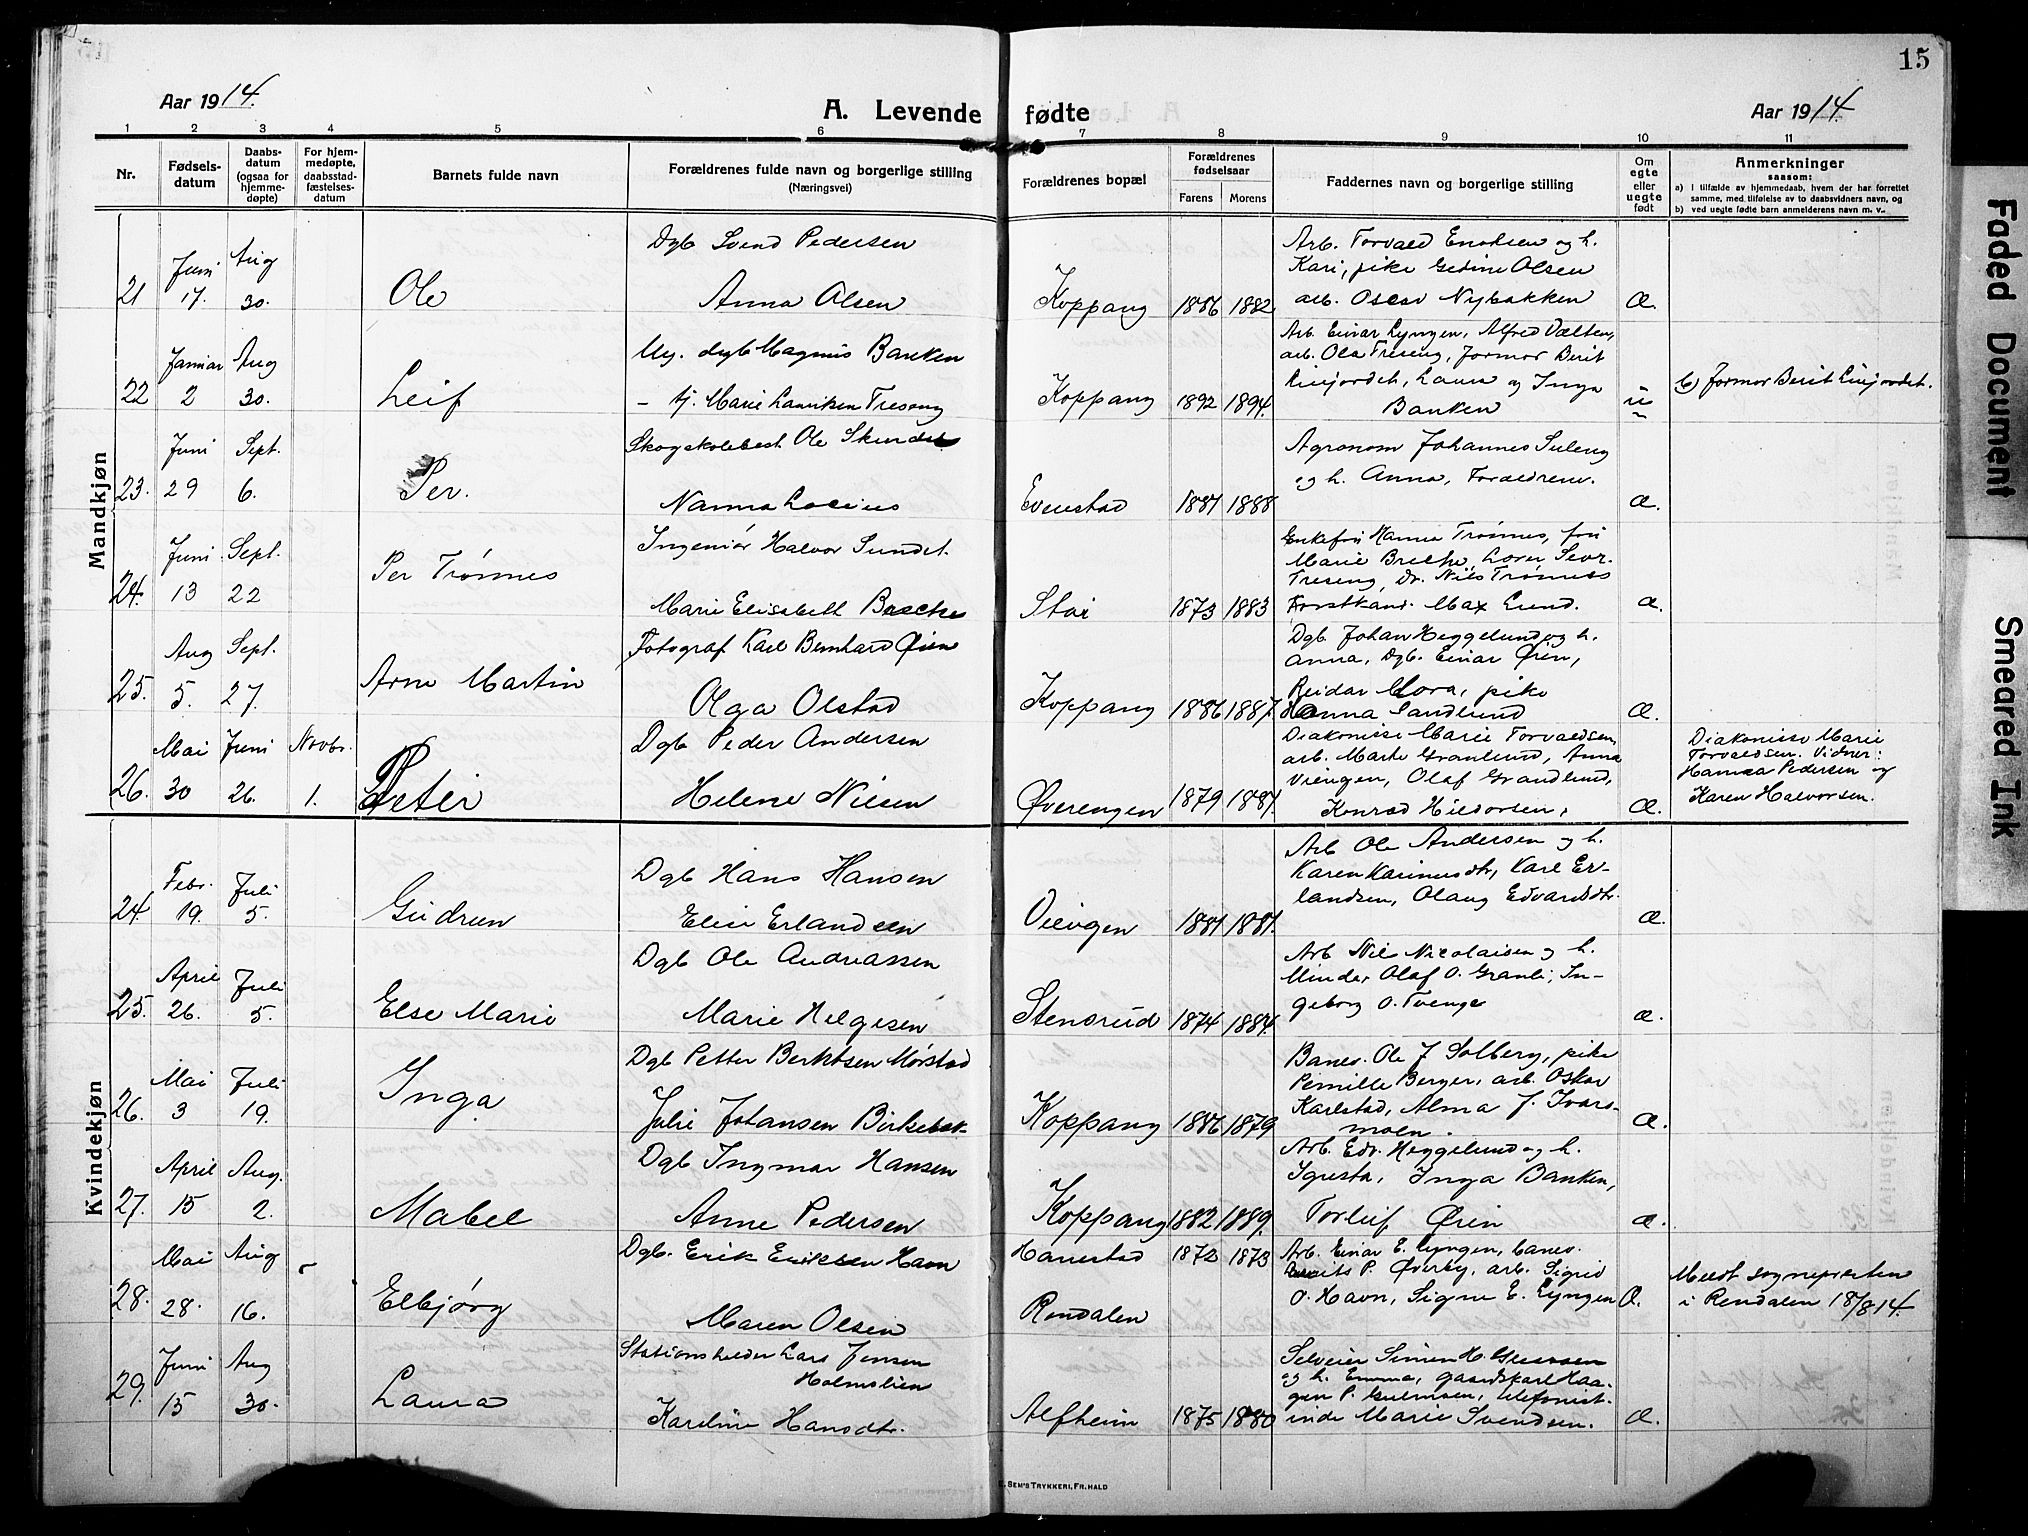 15
Aar 1914.
A. Levende fødte
Aar 1914.
1 2 3 4 5 6 7 8 9 10 11
Nr.
Fødsels-
datum
Daabs-
datum
(ogsaa for
hjemme-
døpte)
For hjem-
medøpte,
daabsstad-
fæstelses-
datum
Barnets fulde navn
Forældrenes fulde navn og borgerlige stilling
(Næringsvei)
Forældrenes bopæl
Forældrenes
fødselsaar
Farens Morens
Faddernes navn og borgerlige stilling
Om
egte
eller
uegte
født
Anmerkninger
saasom:
a) I tilfælde av hjemmedaab, hvem der har forrettet
samme, med tilføielse av to daabsvidners navn, og
b) ved uegte fødte barn anmelderens navn m. v.
Mandkjøn
21 Juni 17. Aug 30. Ole
Dgb Svend Pedersen
Anna Olsen
Koppang 1886 1882
Arb. Torvald Enoksen og h.
Kari, pike Gedine Olsen
arb. Oscar Nybakken
Æ.
22 Januar 2 Aug 30. Leif
Ug. dgb Magnus Banken
- tj. Marie Lauritsen Treseng
Koppang 1892 1894.
Arb. Einar Lyngen, Alfred
arb. Ola Treseng, Jormor Berit
Linjordet, Laura og Inga
Banken
u
b) Jormor Berit Linjordet.
23. Juni 29 Sept. 6. Per.
Skogskolebest. Ole Skindet
Nanna
Evenstad 1881 1888
Agronom Johannes Suleng
og h. Anna, Forældrene.
Æ.
24. Juni 13 Sept. 22 Per Trønnes
Ingeniør Halvor Sundt.
Marie Elisabeth
Stai 1873 1883
Enkefru Hanna Trønnes, fru
Marie
Treseng, Dr. Nils Trønnes
Forstkand. Max Lund.
Æ.
25. Aug 5. Sept. 27. Arne Martin
Fotograf Karl Bernhard Øien
Olga Olstad
Koppang 1886 1887.
Dgb. Johan Heggelund og h.
Anna, Dgb. Einar Øien,
Reidar Mora, pike
Hanna Sandlund
Æ.
26. Mai 30 Juni 26. Novbr. 1. Peter
Dgb Peder Andersen
Helene Nilsen
Øverengen 1879 1881.
Diakonisse Marie Torvaldsen,
arb. Marte Granlund, Anna
Viengen, Olaf Grandlund,
Konrad Hildorsen.
Æ.
Diakonisse Marie
Torvaldsen. Vidner:
Hanna Pedersen og
Karen Halvorsen.
Kvindekjøn
24. Febr. 19. Juli 5. Gudrun
Dgb Hans Hansen
Elise Erlandsen
Viengen 1881 1881.
Arb Ole Andersen og h.
Karen Karinusdtr, Karl Er-
landsen, Olaug Edvardsdtr.
Æ.
25. April 26. Juli 5. Else Marie
Dgb Ole Andreassen
Marie Helgesen
Stensrud 1874 1884.
Arb Nils Nicolaisen og h.
Minda, Olaf O. Granli, In-
geborg O. Tvenge
Æ.
26. Mai 3 Juli 19. Inga
Dgb Petter Berntsen Mørstad
Julie Johansen Birkebak.
Koppang 1886 1879
Banev. Ole J Solberg, pike
Pernille Berger, arb. Oskar
Karlstad, Alma J. Ivars-
moen.
Æ.
27. April 15 Aug. 2. Mabel
Dgb Ingmar Hansen
Anne Pedersen
Koppang 1882 1889.
Arb. Edv. Heggelund og h.
Inga Banken,
Torleif Øien
Æ.
28. Mai 28. Aug 16. Elbjørg
Dgb. Erik Eriksen Havn
Maren Olsen
Hanestad
Rendalen
1872 1873
Arb. Einar E. Lyngen, banev.
P. Øverby, arb. Sigrid
O. Havn, Signe E. Lyngen
Æ.
Meldt sognepresten
i Rendalen 18/8 14.
29. Juni 15 Aug 30. Laura
Stationsholder Lars Jensen
Holmslien
Karoline Hansdtr.
Alfheim 1875 1880
Selveier Simen H.
og h. Emma, gaardskarl Haa-
gen P. telefonist-
inde Marie Svendsen.
Æ.
SEM'S TRYKKERI, FR.HALD
Faded Document
Smeared Ink